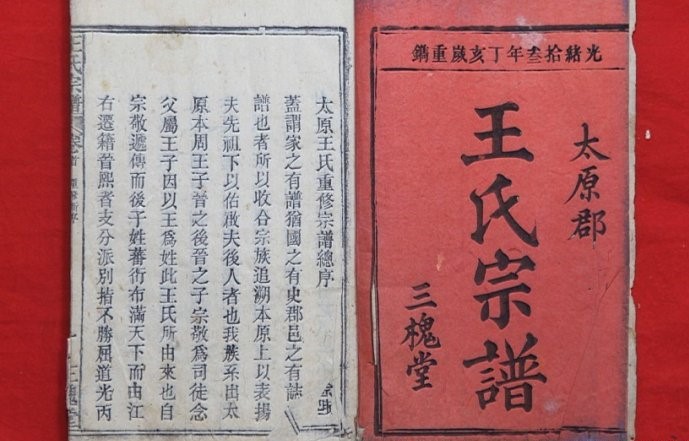 光緒拾叁年丁亥歲重鐫
太原郡
王氏宗譜
三槐堂
太原王氏重修宗譜總序
蓋謂家之有譜猶國之有史郡邑之有誌
譜也者所以收合宗族追溯本原上以表揚
夫先祖下以佑啟夫後人者也我族系出太
原本周王子晉之後晉之子宗敬為司徒念
父屬王子因以王為姓此王氏所由來也自
宗敬遞傳而後子姓蕃衍布滿天下而由江
右遷籍首熙者支分派別指不勝屈道光丙
王氏宗譜